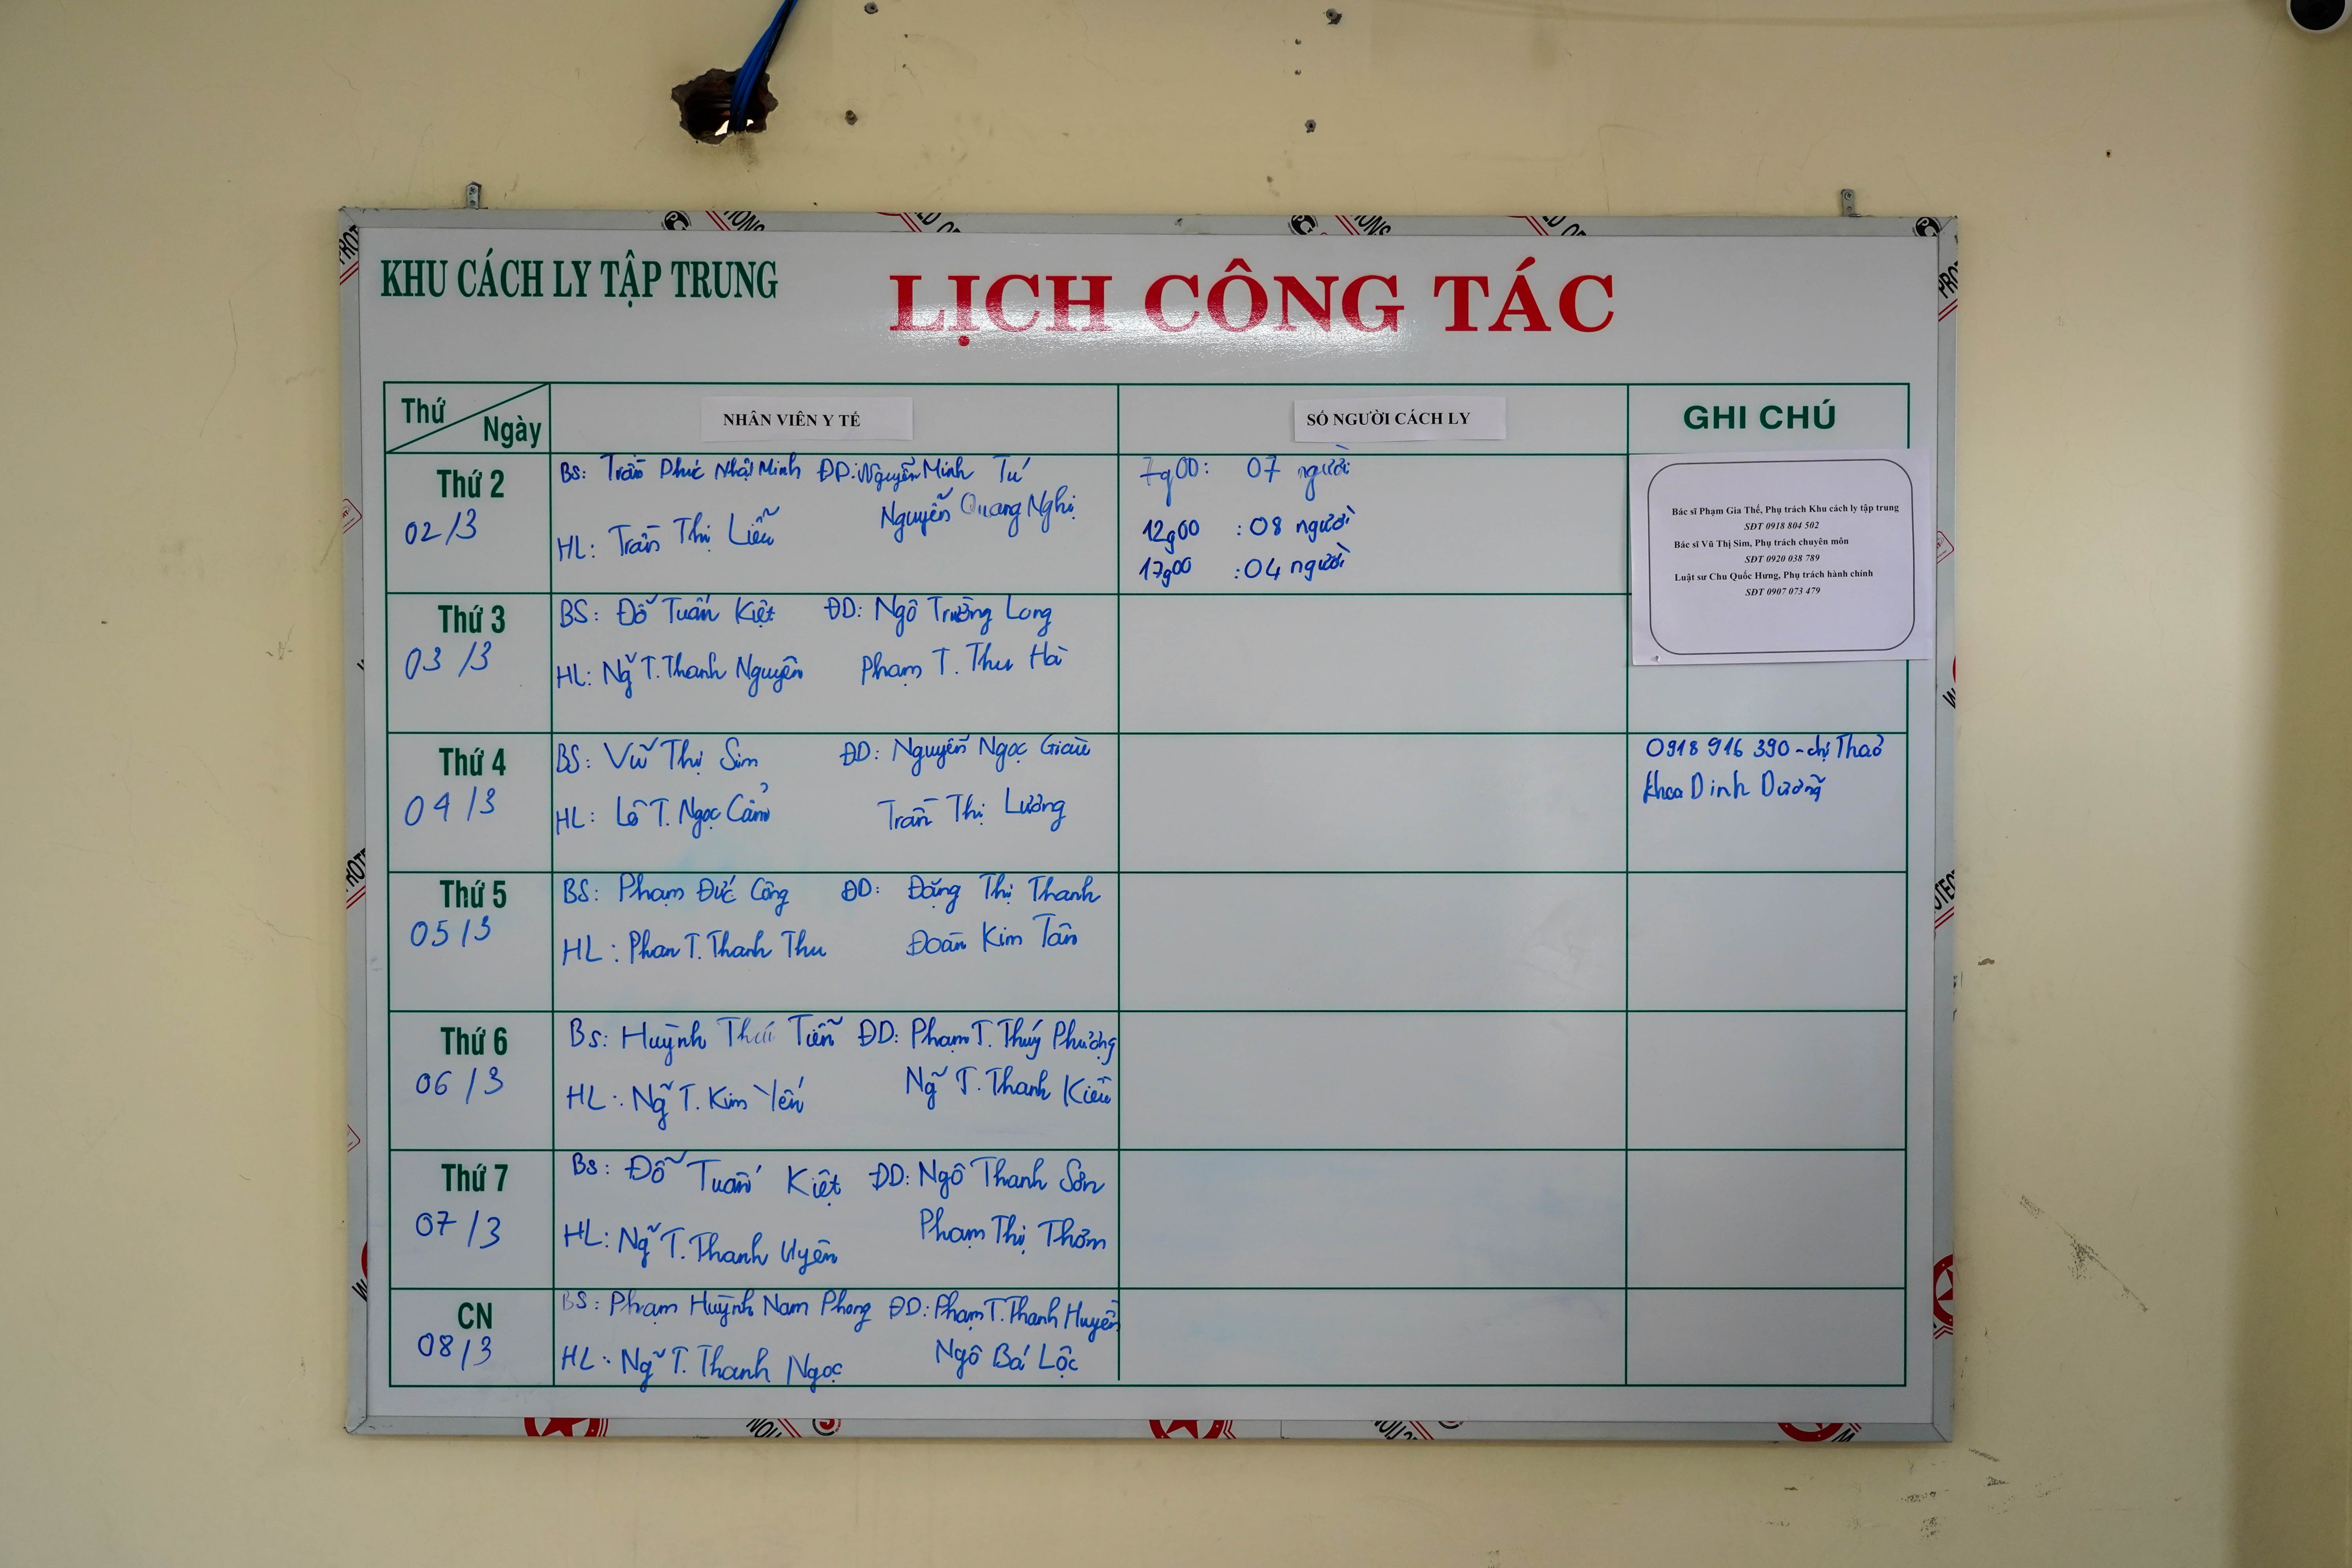 KHU CÁCH LY TẬP TRUNG
LỊCH CÔNG TÁC
Thứ
Ngày
NHÂN VIÊN Y TẾ
SỐ NGƯỜI CÁCH LY
GHI CHÚ
Thứ 2
02/3
BS: Trần Phúc Nhật Minh ĐD: Nguyễn Minh Tú
Nguyễn Quang Nghị
HL: Trần Thị Liễu
7g00: 07 người
12g00 : 08 người
17g00 : 04 người
Bác sĩ Phạm Gia Thế, Phụ trách Khu cách ly tập trung
SĐT 0918 804 502
Bác sĩ Vũ Thị Sim, Phụ trách chuyên môn
SĐT 0920 038 789
Luật sư Chu Quốc Hưng, Phụ trách hành chính
SĐT 0907 073 479
Thứ 3
03/3
BS: Đỗ Tuấn Kiệt ĐD: Ngô Trường Long
HL: Ng̃ T. Thanh Nguyên Phạm T. Thu Hà
Thứ 4
04/3
BS: Vũ Thị Sim ĐD: Nguyễn Ngọc Giàu
HL: Lê T. Ngọc Cẩm Trần Thị Lương
0918 916 390 - chị Thảo
khoa Dinh Dưỡng
Thứ 5
05/3
BS: Phạm Đức Công ĐD: Đặng Thị Thanh
HL: Phan T. Thanh Thu Đoàn Kim Tân
Thứ 6
06/3
Bs: Huỳnh Tiến ĐD: Phạm T. Thúy Phượng
HL: Ng̃ T. Kim Yến Ng̃ T. Thanh Kiều
Thứ 7
07/3
Bs: Đỗ Tuấn Kiệt ĐD: Ngô Thanh Sơn
HL: Ng̃ T. Thanh Uyên Phạm Thị Thơm
CN
08/3
BS: Phạm Huỳnh Nam Phong ĐD: Phạm T. Thanh Huyền
HL: Ng̃ T. Thanh Ngọc Ngô Bá Lộc